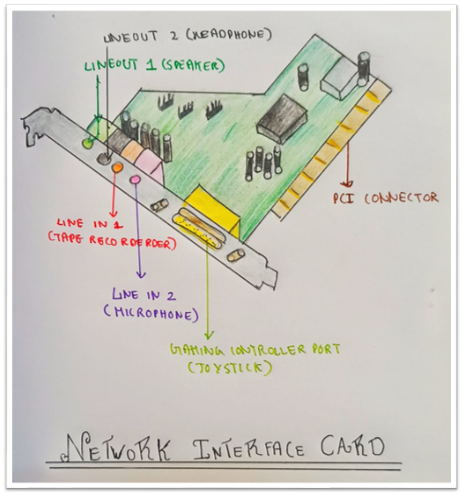 LINEOUT 2 (HEADPHONE)
LINEOUT 1 (SPEAKER)
PCI CONNECTOR
LINE IN 1
(TAPE RECORDERDER)
LINE IN 2
(MICROPHONE)
GAMING CONTROLLER PORT
(JOYSTICK)
NETWORK INTERFACE CARD